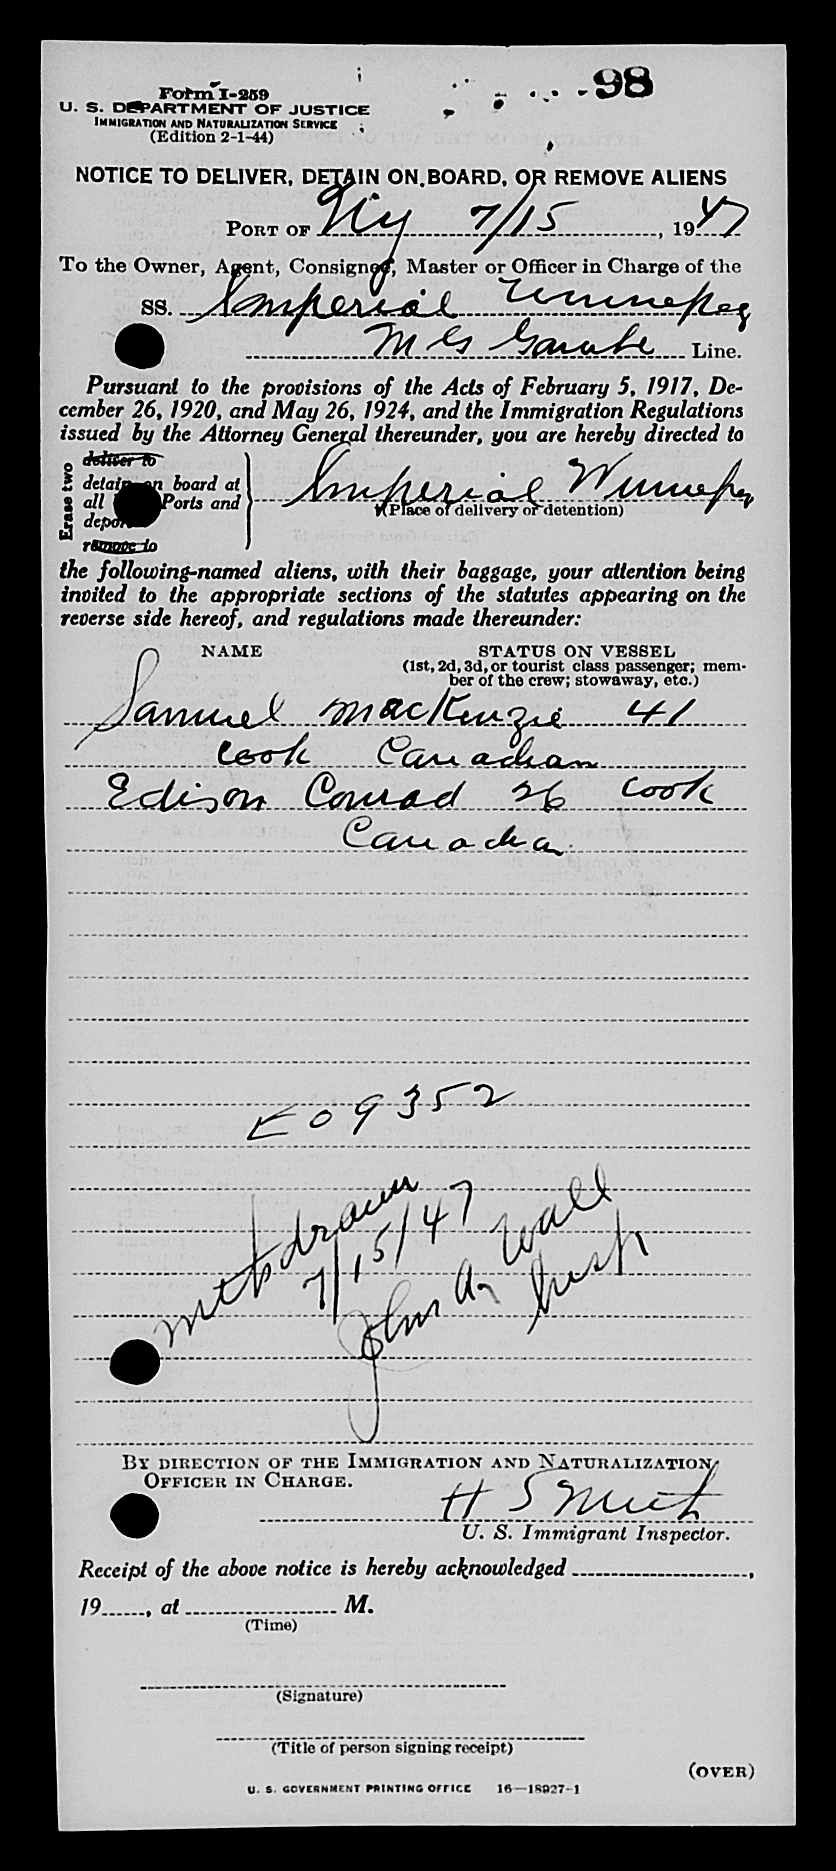 98
Form I-259
U. S. DEPARTMENT OF JUSTICE
IMMIGRATION AND NATURALIZATION SERVICE
(Edition 2-1-44)
NOTICE TO DELIVER, DETAIN ON BOARD, OR REMOVE ALIENS
PORT OF NY 7/15, 1947
To the Owner, Agent, Consignee, Master or Officer in Charge of the
SS. Imperial Winnepeg
Line.
Pursuant to the provisions of the Acts of February 5, 1917, De-
cember 26, 1920, and May 26, 1924, and the Immigration Regulations
issued by the Attorney General thereunder, you are hereby directed to
Erase two
deliver to
detain on board at
all Ports and
deport
remove to
Imperial Winnepeg
(Place of delivery or detention)
the following-named aliens, with their baggage, your attention being
invited to the appropriate sections of the statutes appearing on the
reverse side hereof, and regulations made thereunder:
NAME STATUS ON VESSEL
(1st, 2d, 3d, or tourist class passenger; mem-
ber of the crew; stowaway, etc.)
Samuel MacKenzie 41
cook Canadian
Edison Conrad 26 cook
Canadian
E09352
withdrawn
7/15/47
John A. Wall
Insp
BY DIRECTION OF THE IMMIGRATION AND NATURALIZATION
OFFICER IN CHARGE.
H S
U. S. Immigrant Inspector.
Receipt of the above notice is hereby acknowledged ,
19 , at M.
(Time)
(Signature)
(Title of person signing receipt)
(OVER)
U. S. GOVERNMENT PRINTING OFFICE 16—18927-1